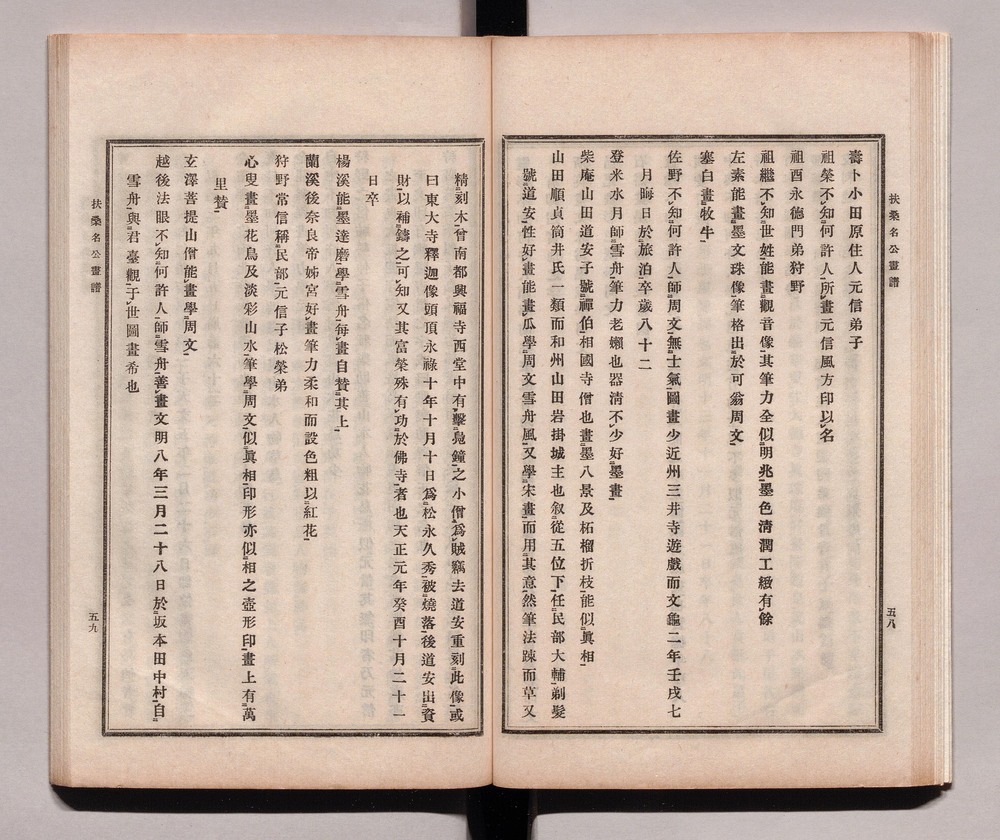 扶桑名公畫譜
五八
壽卜小田原住人元信弟子
祖榮不知何許人所畫元信風方印以名
祖酉永德門弟狩野
祖繼不知世姓能畫觀音像其筆力全似明兆墨色淸潤工緻有餘
左素能畫墨文珠像筆格出於可翁周文
塞白畫牧牛
佐野不知何許人師周文無士氣圖畫少近州三井寺遊戲而文龜二年壬戌七
月晦日於旅泊卒歲八十二
登米水月師雪舟筆力老嫩也器淸不少好墨畫
柴庵山田道安子號禪伯相國寺僧也畫墨八景及柘榴折枝能似眞相
山田順貞筒井氏一類而和州山田岩掛城主也叙從五位下任民部大輔剃髮
號道安性好畫能畫瓜學周文雪舟風又學宋畫而用其意然筆法踈而草又
精刻木曾南都興福寺西堂中有擊鳧鐘之小僧爲賊竊去道安重刻此像或
曰東大寺釋迦像頭頂永祿十年十月十日爲松永久秀被燒落後道安出資
財以補鑄之可知又其富榮殊有功於佛寺者也天正元年癸酉十月二十一
日卒
楊溪能墨達磨學雪舟每畫自贊其上
蘭溪後奈良帝姊宮好畫筆力柔和而設色粗以紅花
狩野常信稱民部元信子松榮弟
心叟畫墨花鳥及淡彩山水筆學周文似眞相印形亦似相之壺形印畫上有萬
里贊
玄澤菩提山僧能畫學周文
越後法眼不知何許人師雪舟善畫文明八年三月二十八日於坂本田中村自
雪舟與君臺觀于世圖畫希也
扶桑名公畫譜
五九